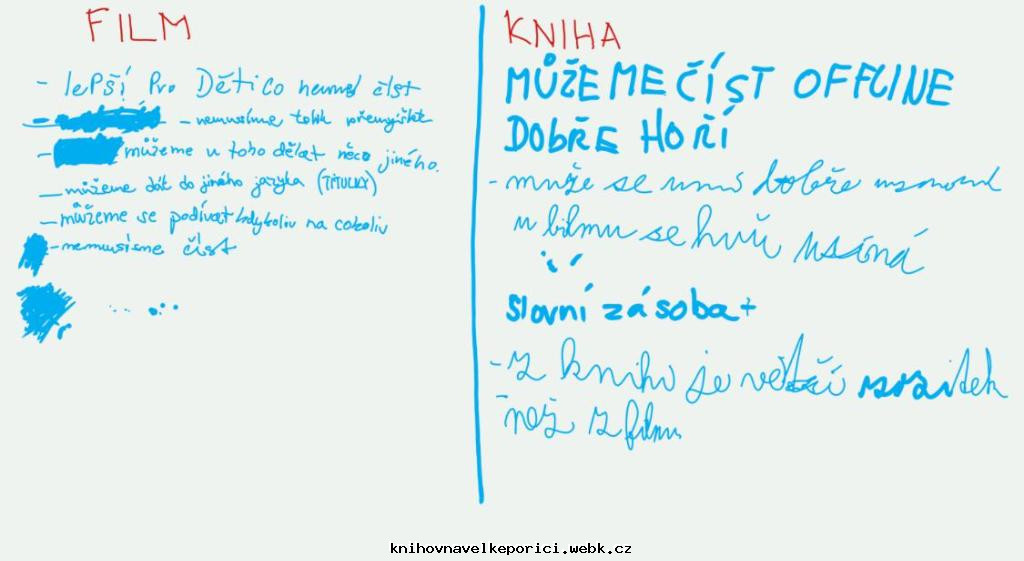 FILM
- lepší pro Děti co neumí číst
- nemusíme tolik přemýšlet
- můžeme u toho dělat něco jiného.
- můžeme dát do jiného jazyka (TITULKY)
- můžeme se podívat kdykoliv na cokoliv
- nemusíme číst
KNIHA
MŮŽEME ČÍST OFFLINE
DOBŘE HOŘÍ
- může se u ní dobře usnout
u filmu se hůř usíná
slovní zásoba+
- z knihi je větší
než z filmu
knihovnavelkeporici.webk.cz